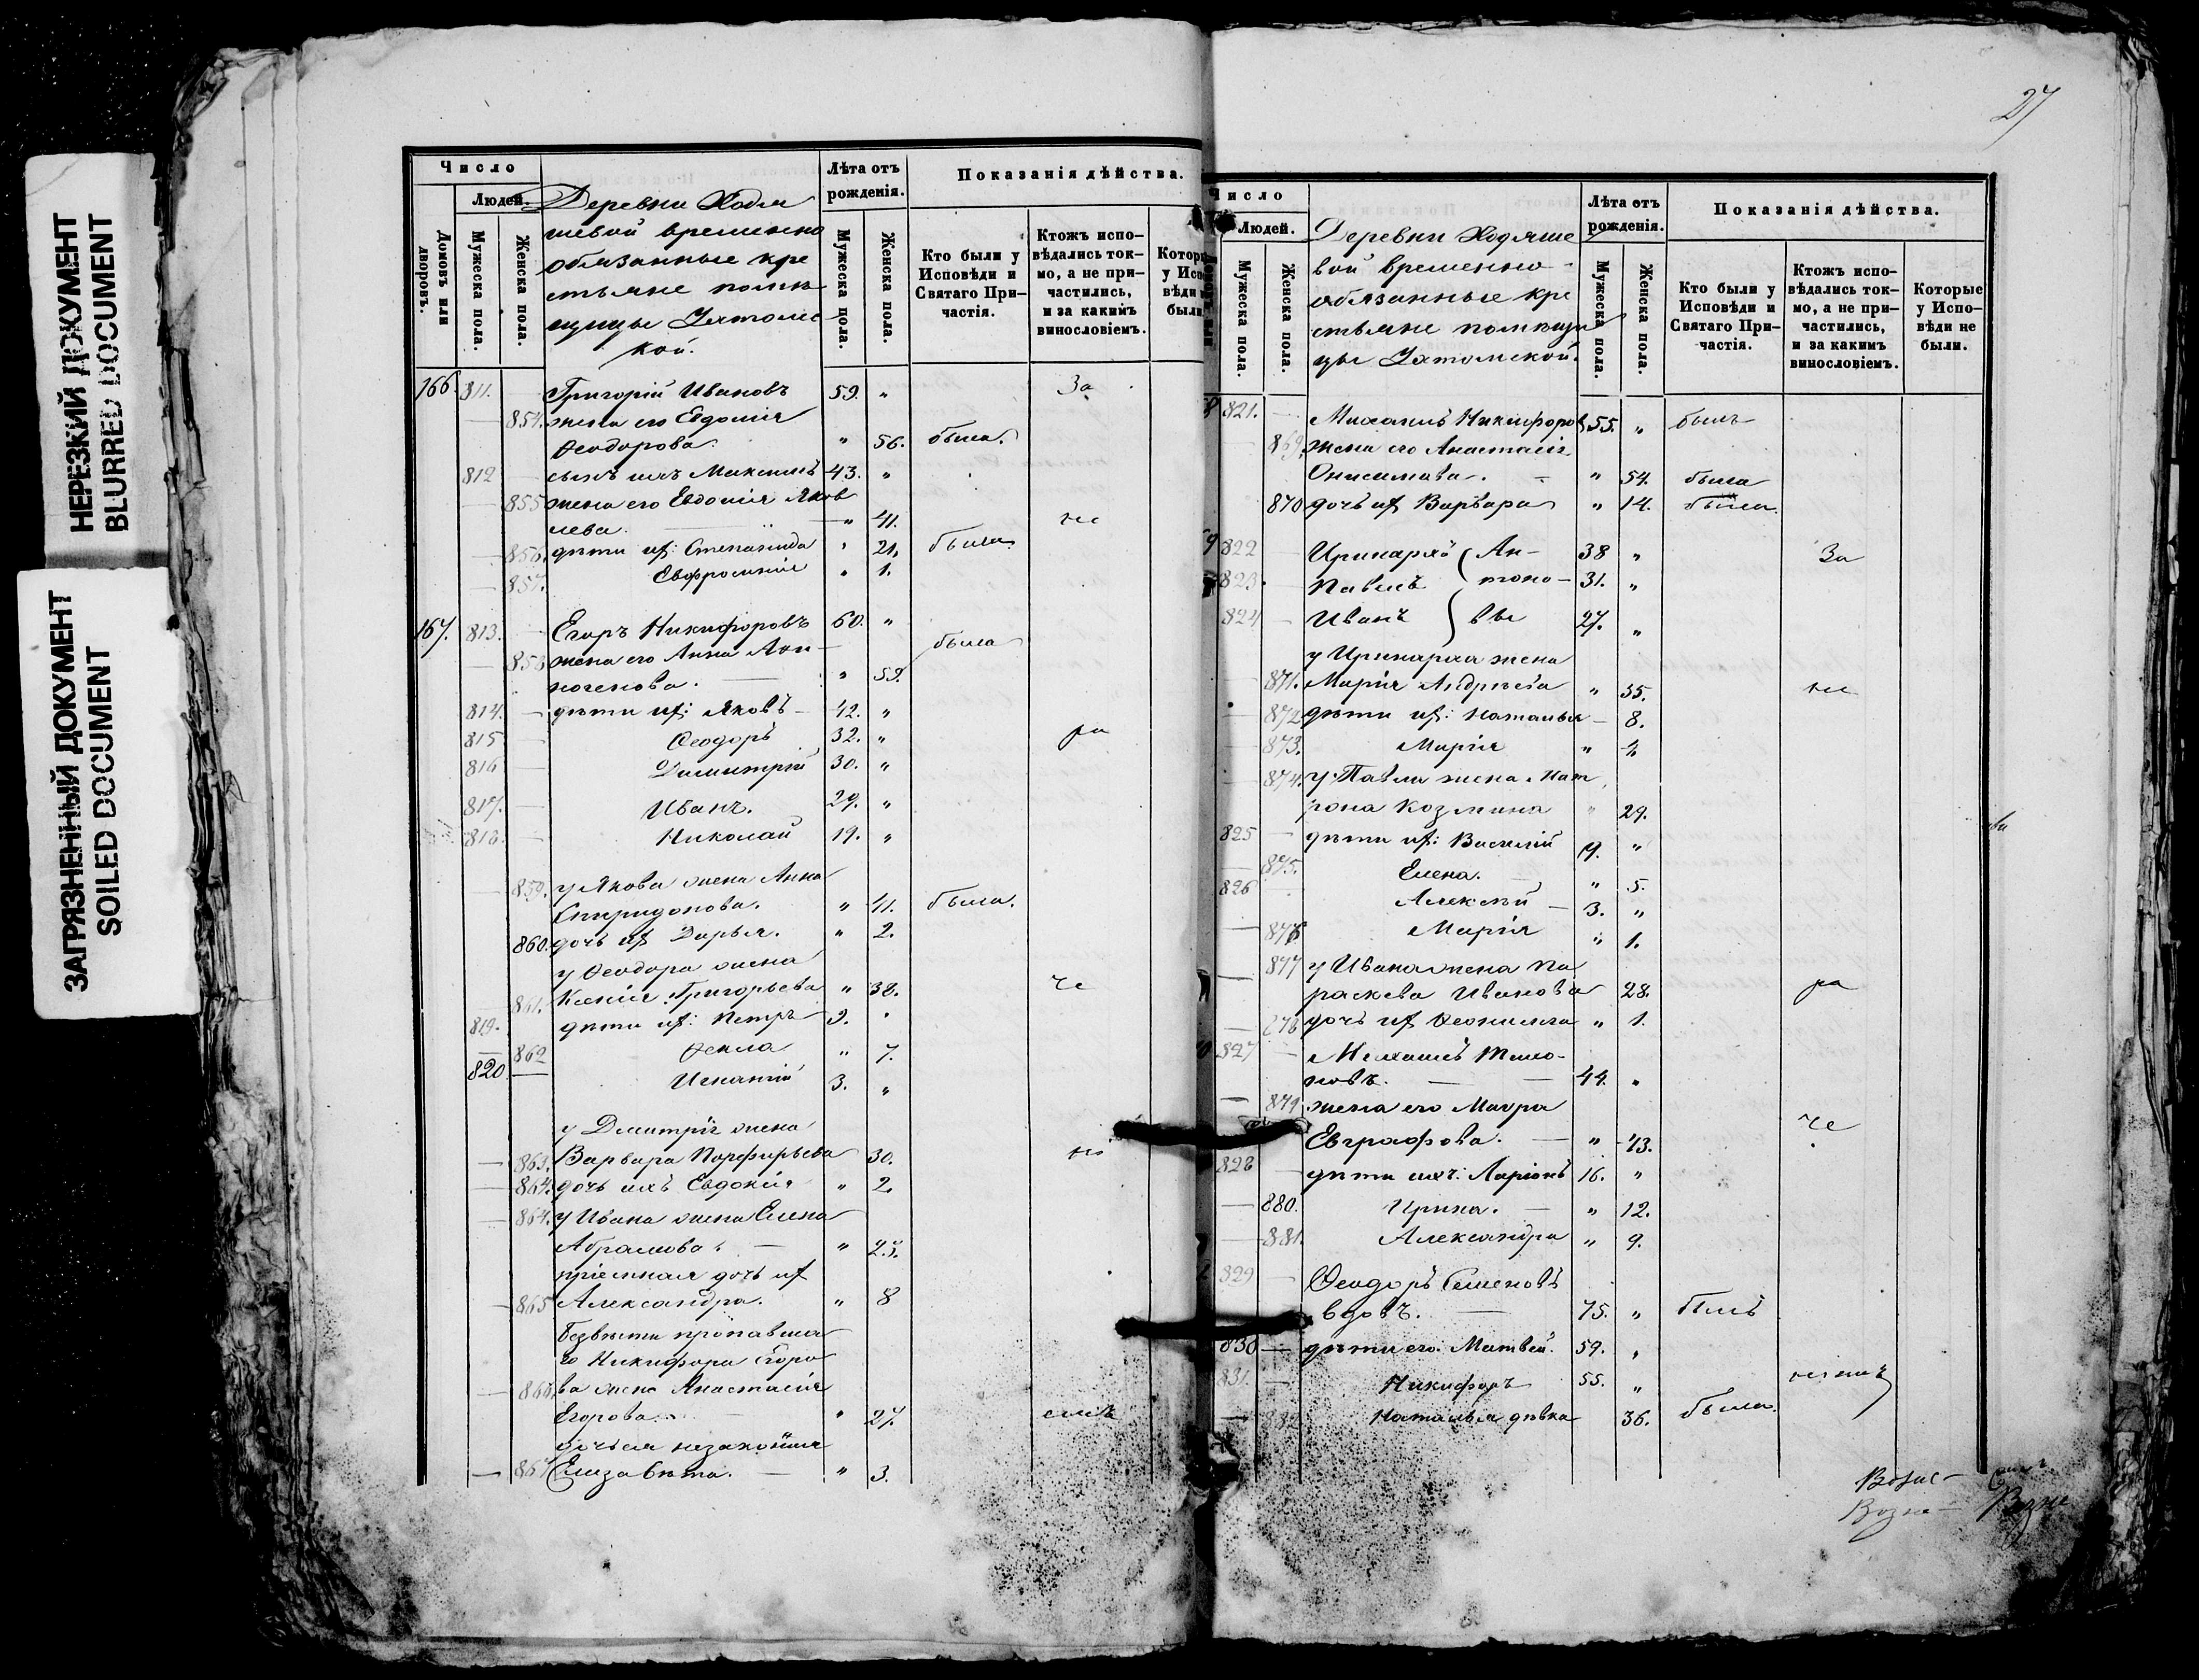 НЕРЕЗКИЙ ДОКУМЕНТ
BLURRED DOCUMENT
ЗАГРЯЗНЕННЫЙ ДОКУМЕНТ
SOILED DOCUMENT
Число
Людей.
Домовъ или дворовъ.
Мужеска пола.
Женска пола.
Деревни Ходя
шевой временно
обязанные кре
стьяне помѣ
щицы
кой.
Лѣта отъ рожденія.
Мужеска пола.
Женска пола.
Показанія дѣйства.
Кто были у Исповѣди и Святаго При-
частія.
Ктожъ испо-
вѣдались ток-
мо, а не при-
частились,
и за какимъ
винословіемъ.
166. 811. — Григорій Ивановъ 59. „ За
— 854. жена его Евдокія
Ѳеодорова. „ 56. была.
812 — сынъ ихъ Максимъ 43. „
— 855 жена его Евдокія Яков
лева. — „ 41. не
— 856. дѣти их: Степанида „ 21. была.
— 857. Евфросинія „ 1.
167. 813. — Егоръ Никифоровъ 60. „
— 858 жена его Анна была
— „ 59.
814. — дѣти их: Яковъ — 42. „
815 — Ѳеодоръ 32. „ ра
816 — Димитрій 30. „
817. — Иванъ. 29. „
818. — Николай 19. „
— 859. у Якова жена Анна
Спиридонова. „ 41. была.
860. дочь их Дарья. „ 2.
у Ѳеодора жена
861. Ксенія Григорьева „ 38. че
819. дѣти их: Петръ 9. „
— 862 Ѳекла „ 7.
820 — Игнатій 3. „
у Димитрія жена
— 863. Варвара Порфирьева 30. ні
— 864. дочь ихъ Евдокія „ 2.
— 864. у Ивана жена Елена
Абрамова. — „ 25.
пріемная дочь их
— 865 Александра. „ 8
Безвѣсти пропавша
го Никифора Егоро
— 866. ва жена Анастасія
Егорова. — „ 27. емъ
дочь ея незаконная
— 867 Елизавета. — „ 3.
27
Число
Людей.
Мужеска пола.
Женска пола.
Деревни Ходяше
вой временно-
обязанные кре
стьяне помѣщи
цы
Лѣта отъ рожденія.
Мужеска пола.
Женска пола.
Показанія дѣйства.
Кто были у Исповѣди и Святаго При-
частія.
Ктожъ испо-
вѣдались ток-
мо, а не при-
частились,
и за какимъ
винословіемъ.
Которые у Испо-
вѣди не были.
821. — Михаилъ Никифоров 55. „ былъ
— 869. жена его Анастасія
Онисимова. — „ 54. была
870 дочь их Варвара „ 14. была.
822 — Иринархъ ( Ан- 38 „ За
823. Павелъ тоно- 31. „
824 — Иванъ вы 27. „
у Иринарха жена
— 871. Марія Андреева „ 35. не
— 872 дѣти их: Наталья — 8.
— 873. Марія „ 4
— 874. у Павла жена Мат
рона Козмина „ 29.
825 — дѣти их: Василій 9. „
— 875. Елена. — „ 5.
826 — Алексѣй — 3. „
— 876 Марія „ 1.
— 877 у Ивана жена Па
раскева Иванова 28. ра
— 878 дочь их „ 1.
827 — Михаилъ Тимо-
новъ. — — 44. „
— 879. жена его Мавра
Евграфова. — „ 43. че
828 — дѣти ихъ: Ларіонъ 16. „
— 880. Ирина. — „ 12.
— 881. Александра „ 9.
829 — Ѳеодоръ Семеновъ
вдовъ. — 75. „ былъ
830 — дѣти его: Матвей. 59. „
831. — Никифоръ 55. „
— 882 Наталья дѣвка 36. была.